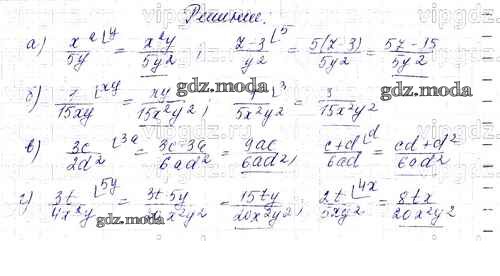 Решение:
а) x²/5y ⌊y = x²y/5y²; z-3/y² ⌊5 = 5(z-3)/5y² = 5z-15/5y²
б) 1/15xy ⌊xy = xy/15x²y²; 1/5x²y² ⌊3 = 3/15x²y²
в) 3c/2d² ⌊3a = 3c·3a/6ad² = 9ac/6ad²; c+d/6ad ⌊d = cd+d²/6ad²
г) 3t/4x²y ⌊5y = 3t·5y/20x²y² = 15ty/20x²y²; 2t/5xy² ⌊4x = 8tx/20x²y²
gdz.moda
gdz.moda
gdz.moda
gdz.moda